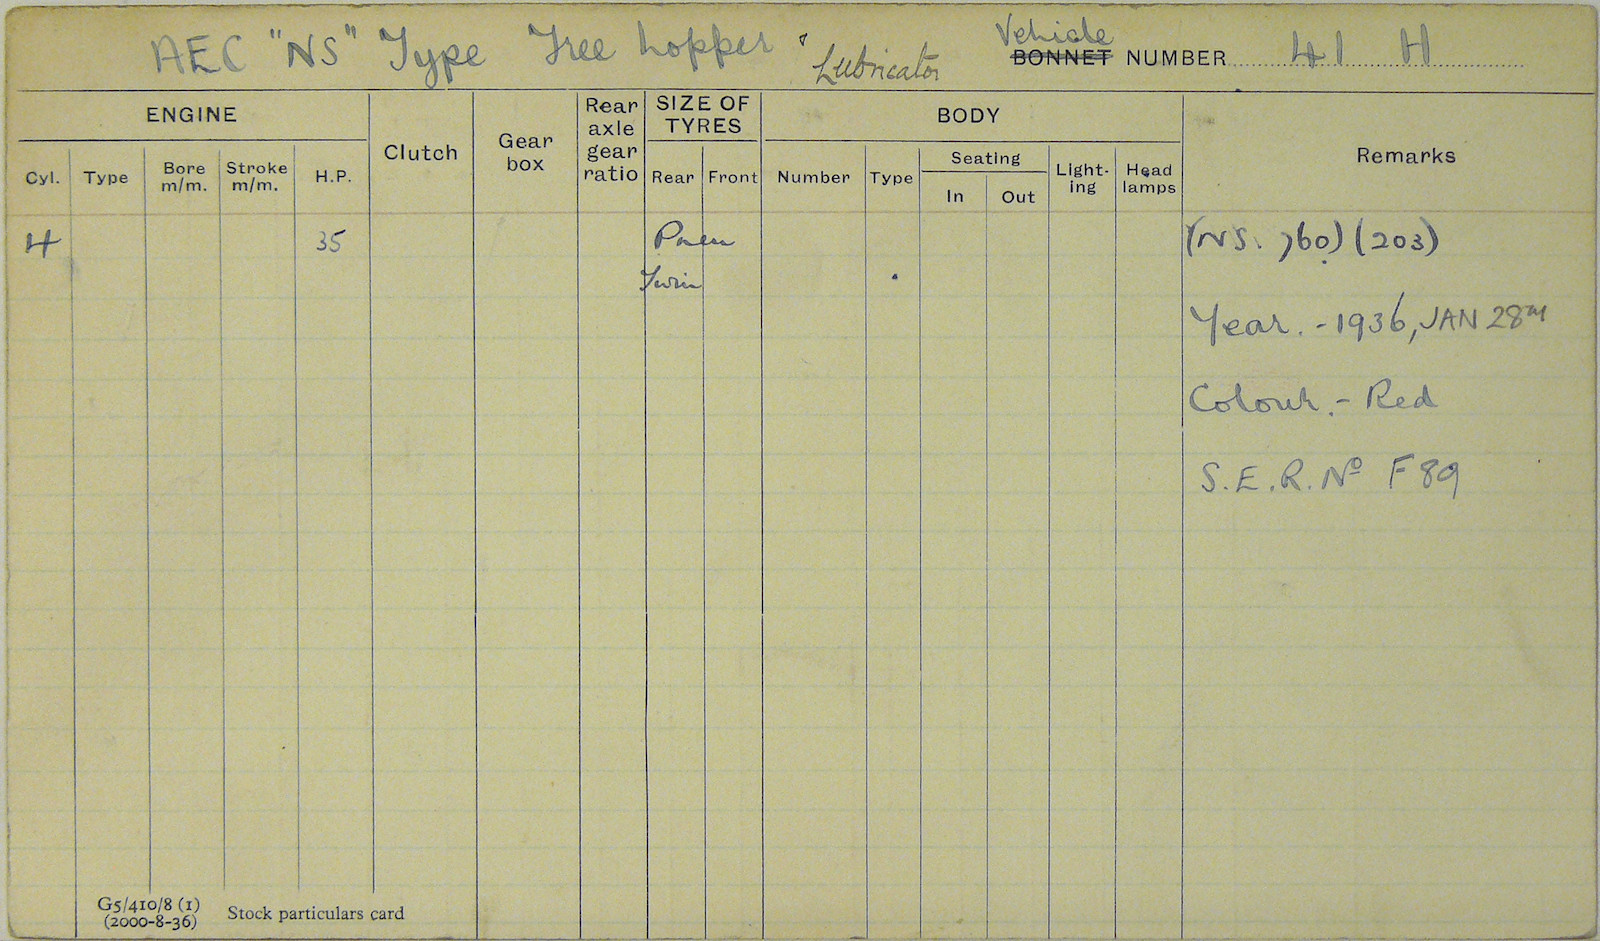 AEC "NS" Type Tree Lopper & Lubricator
Vehicle
BONNET NUMBER 41 H
ENGINE
Cyl. Type Bore m/m. Stroke m/m. H.P.
Clutch
Gear box
Rear axle gear ratio
SIZE OF TYRES
Rear Front
BODY
Number Type Seating In Out Light-ing Head lamps
Remarks
4 35 Pneu (NS. 760) (203)
Twin
Year. - 1936, JAN 28TH
Colour. - Red
S.E.R. Nº F89
G5/410/8 (1)
(2000-8-36)
Stock particulars card